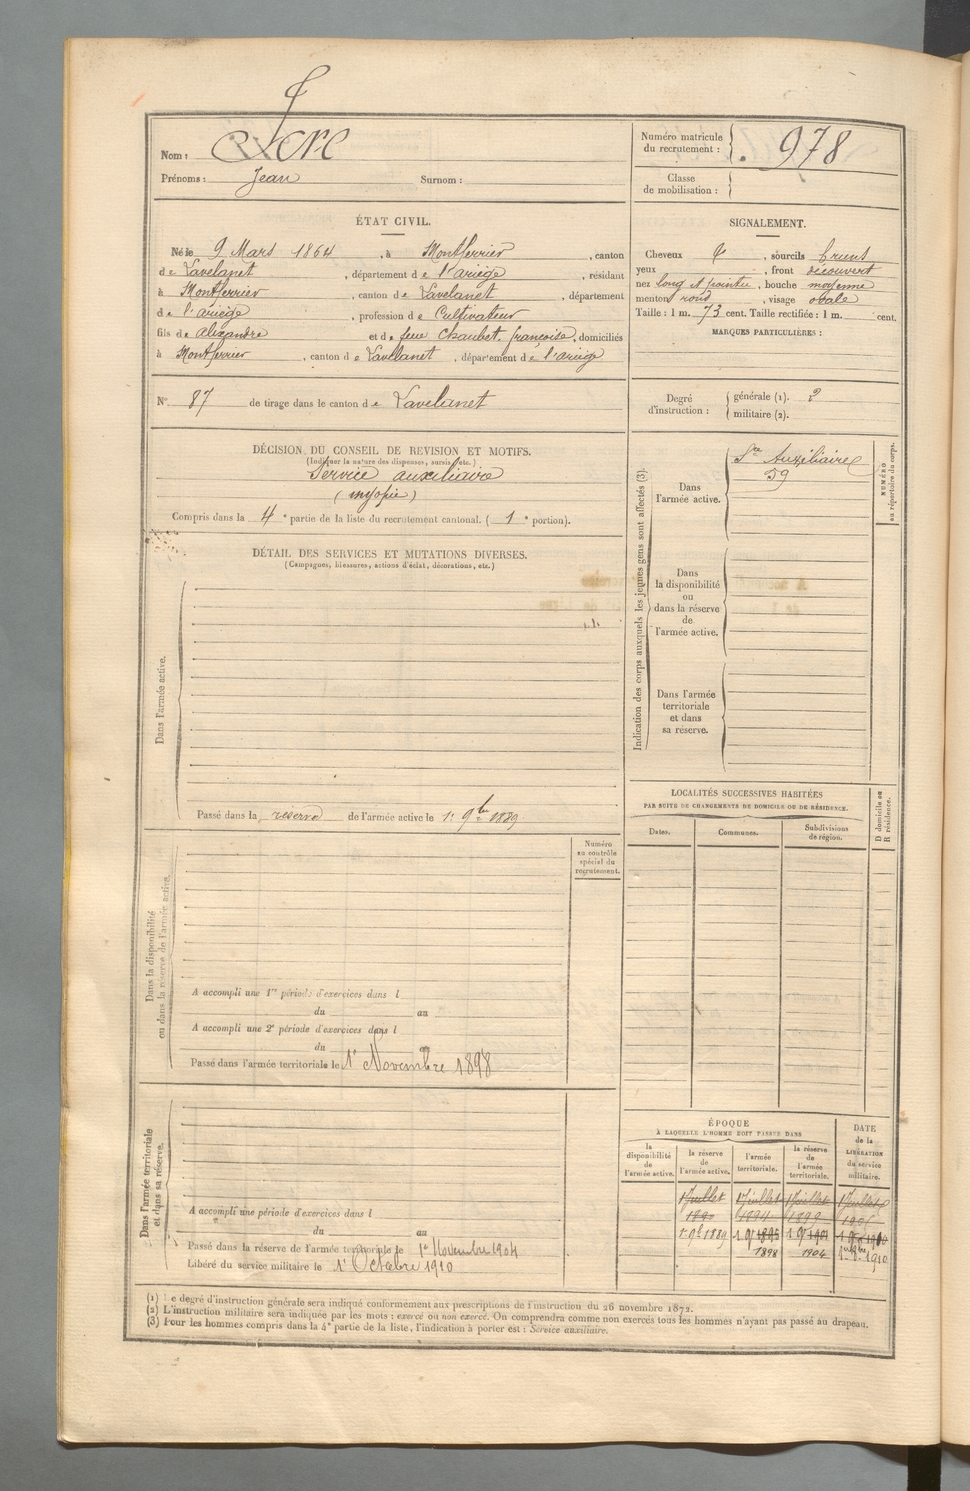 Nom :
Numéro matricule du recrutement : 978
Prénoms : Jean Surnom :
Classe de mobilisation :
ÉTAT CIVIL.
Né le 9 Mars 1864, à Montferrier, canton
de Lavelanet, département de l'ariège, résidant
à Montferrier, canton de Lavelanet, département
de l'ariège, profession de Cultivateur
fils de alexandre et de feue Chaubet, françoise, domiciliés
à Montferrier, canton de Lavelanet, département de l'ariège
SIGNALEMENT.
Cheveux, sourcils bruns
yeux, front découvert
nez long et pointu, bouche moyenne
menton rond, visage ovale
Taille : 1 m. 73 cent. Taille rectifiée : 1 m. cent.
MARQUES PARTICULIÈRES :
N° 87 de tirage dans le canton de Lavelanet
Degré d'instruction : générale (1). 2
militaire (2).
DÉCISION DU CONSEIL DE REVISION ET MOTIFS.
(Indiquer la nature des dispenses, sursis, etc.)
Service auxiliaire
(myopie)
Compris dans la 4e partie de la liste du recrutement cantonal. (1e portion).
DÉTAIL DES SERVICES ET MUTATIONS DIVERSES.
(Campagnes, blessures, actions d'éclat, décorations, etc.)
Dans l'armée active.
Passé dans la réserve de l'armée active le 1er 9bre 1889
Indication des corps auxquels les jeunes gens sont affectés (3).
Dans l'armée active.
Sce Auxiliaire
59
NUMÉRO au répertoire du corps.
Dans la disponibilité ou dans la réserve de l'armée active.
Dans l'armée territoriale et dans sa réserve.
LOCALITÉS SUCCESSIVES HABITÉES
PAR SUITE DE CHANGEMENTS DE DOMICILE OU DE RÉSIDENCE.
Dates. Communes. Subdivisions de région.
D domicile ou R résidence.
Dans la disponibilité ou dans la réserve de l'armée active.
Numéro au contrôle spécial du recrutement.
A accompli une 1re période d'exercices dans l
du au
A accompli une 2e période d'exercices dans l
du au
Passé dans l'armée territoriale le 1er Novembre 1898
Dans l'armée territoriale et dans sa réserve.
A accompli une période d'exercices dans l
du au
Passé dans la réserve de l'armée territoriale le 1er Novembre 1904
Libéré du service militaire le 1er Octobre 1910
ÉPOQUE
À LAQUELLE L'HOMME DOIT PASSER DANS
DATE de la LIBÉRATION du service militaire.
la disponibilité de l'armée active. la réserve de l'armée active. l'armée territoriale. la réserve de l'armée territoriale.
1 Juillet 1 Juillet 1 Juillet 1 Juillet
1894 1899
1er 9bre 1889 1895
1898 1904 1910
(1) Le degré d'instruction générale sera indiqué conformément aux prescriptions de l'instruction du 26 novembre 1872.
(2) L'instruction militaire sera indiquée par les mots : exercé ou non exercé. On comprendra comme non exercés tous les hommes n'ayant pas passé au drapeau.
(3) Pour les hommes compris dans la 4e partie de la liste, l'indication à porter est : Service auxiliaire.